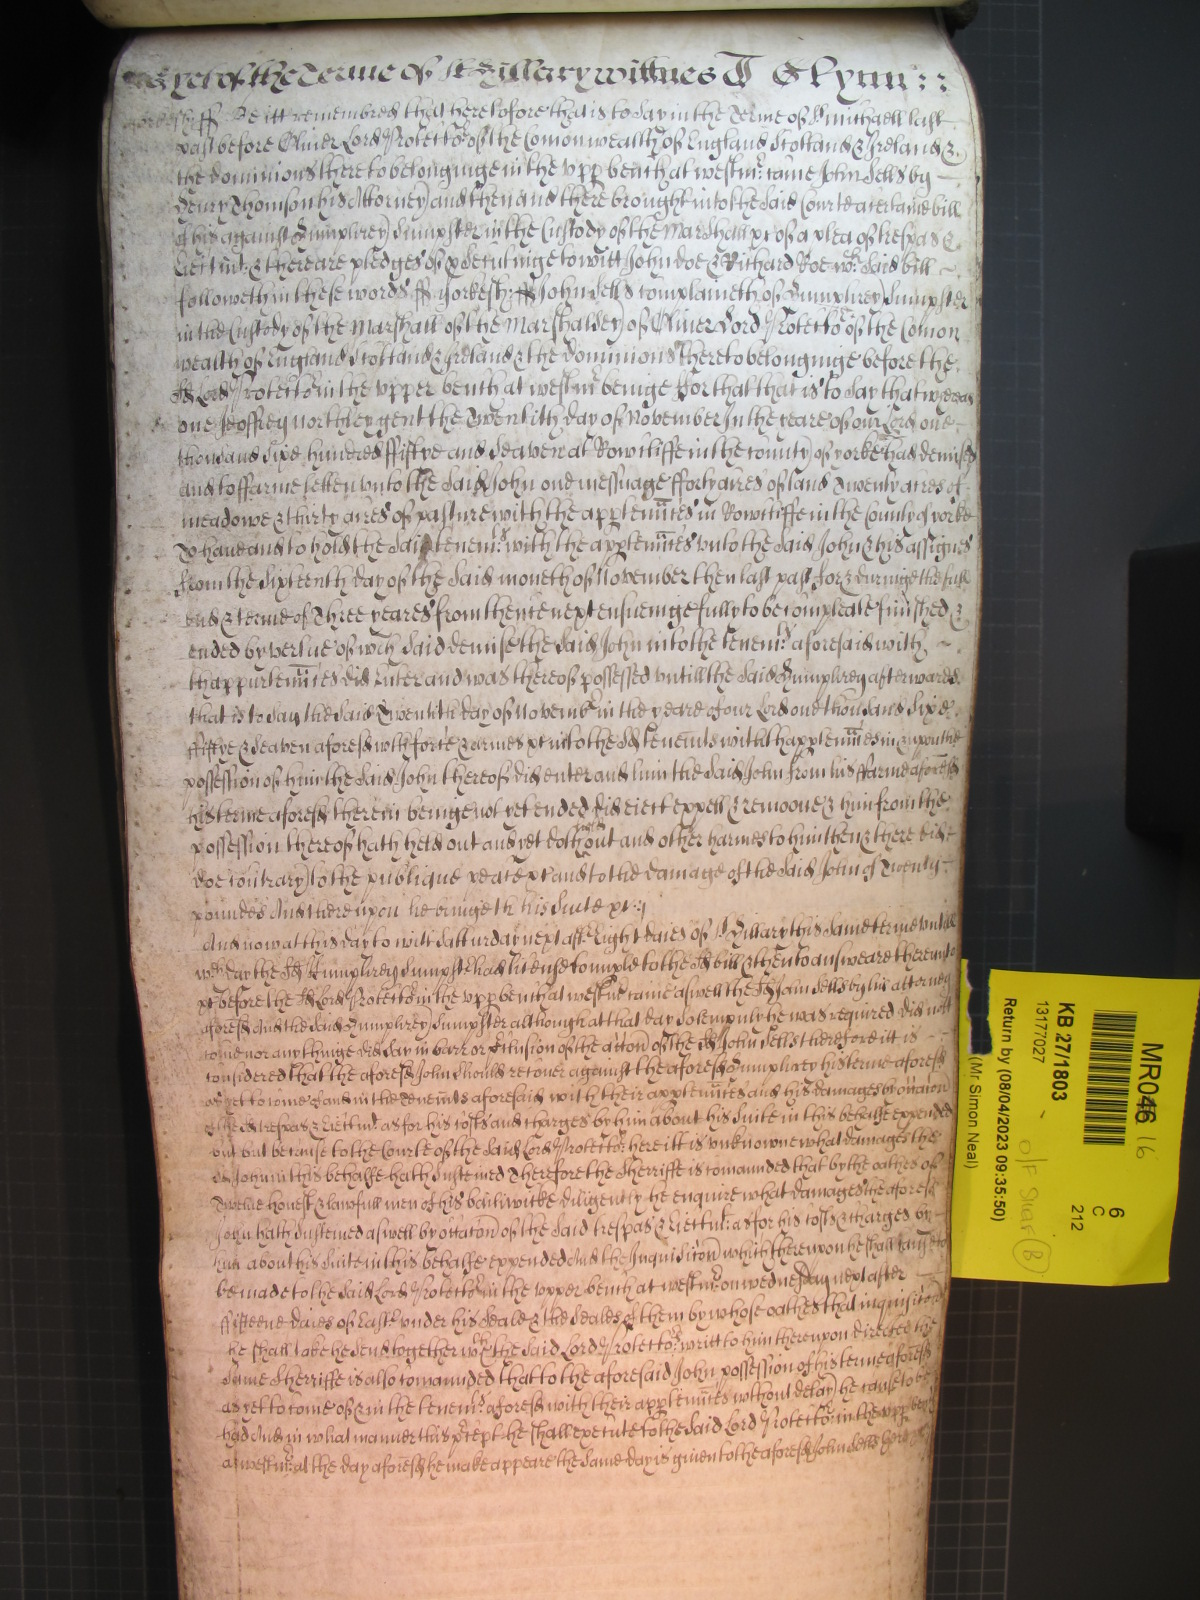 yet of the Terme of St Hillary wittnes J Glynn ::
Yorkesh ff Be itt remembred that heretofore that is to say in the Terme of St Michaell last
past before Oliver Lord Protector of the Comonwealth of England Scotland & Ireland &
the dominions thereto belonginge in the upp bench at westmr: came John Sells by
Henry Thomson his Attorney and then and there brought into the said Courte a certaine bill
of his against Humphrey Dumpster in the Custody of the Marshall &c of a plea of trespas &
Eiectmt: & there are pledges of prosecutinge to witt John Doe & Richard Roe wch: said bill
followeth in these words ff: Yorkesh: ff John Sells complaineth of Humphrey Dumpster
in the Custody of the Marshall of the Marshalsey of Oliver Lord Protector of the Comon
wealth of England Scotland & Ireland & the dominions thereto belonginge before the
sd Lord Protector in the upper bench at westmr beinge For that that is to say that whereas
one Jeoffrey northey gent the Twentith day of November In the yeare of our Lord one
thousand sixe hundred fiftye and Seaven at Rowcliffe in the county of yorke had demised
and to ffarme letten unto the said John one messuage fforty acres of land Twenty acres of
meadowe & thirty acres of pasture with the apptenntes in Rowcliffe in the County of yorke
To have and to hold the said tenemts: with the apptenntes unto the said John & his assignes
from the sixteenth day of the said moneth of November then last past for & duringe the full
end & terme of Three yeares from thence next ensueinge fully to be compleate finished &
ended by vertue of wch said demise the said John into the tenemts aforesaid with
thappurtenntes did enter and was thereof possessed untill the said Humphrey afterwards
that is to say the said Twentith day of Novembr in the yeare of our Lord one thousand sixe
fiftye & seaven aforesd with force & armes &c into the sd tenemts with thapptenntes in & upon the
possession of him the said John thereof did enter and him the said John from his ffarme aforesd
his terme aforesd therein beinge not yet ended did eiect expell & remoove & him from the
possession thereof hath held out and yet doth hold out and other harmes to him then & there did
doe contrary to the publique peace &c and to the damage of the said John of Twenty
poundes And thereupon he bringeth this suite &c:
And now at this day to witt satturday next aftr Eight daies of St Hillary this same terme untill
wch day the sd Humphrey Dumpster had licence to imple to the sd bill & then to answeare thereunto
&c before the sd Lord Protector in the upp bench at westmr came aswell the sd John Sells by his attorney
aforesd And the said Humphrey Dumpster although at that day solempnly he was required did not
come nor any thinge did say in barr or preclusion of the accon of the sd John Sells therefore it is
considered that the aforesd John should recover against the aforesd Humphrey his terme aforesd
as yet to come of and in the tenemts aforesaid with their apptenntes and his damages by occasion
of the sd trespas & Eiectmt: as for his costs and charges by him about his suite in this behalfe expended
out but because to the Courte of the said Lord Protector here it is unknowne what damages the
sd John in this behalfe hath susteined Therefore the Sherriffe is comaunded that by the oathes of
Twelve honest & lawfull men of his bailiwicke diligently he enquire what damages the aforesd
John hath susteined aswell by occation of the said trespas & Eiectmt: as for his costs & charges by
him about his suite in this behalfe expended And the Inquisicon which thereupon he shall
be made to the said Lord Protector in the upper bench at westmr: on wednesday next after
fifteene daies of Eastr under his seale & the seales of them by whose oathes that inquisicon
he shall take he send together wth the said Lord Protectors writt to him thereupon directed the
same Sherriffe is also comaunded that to the aforesaid John possession of his terme aforesd
as yet to come of & in the tenemts aforesd with their apptenntes without delay he cause to be
had And in what manner this precept he shall execute to the said Lord Protector in the upp bench
at westmr: at the day aforesd he make appeare the same day is given to the aforesd John Sells here
MR046 16
KB 27/1803
13177027
Return by (08/04/2023 09:35:50)
(Mr Simon Neal)
6
C
212